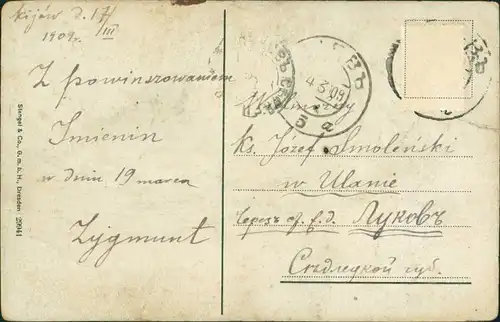 Kijów d. 17/III
1909 r.
Z powinszowaniem
Imienin
w dniu 19 marca
Zygmunt
Stengel & Co., G. m. b. H., Dresden 29941
4 3 09
5 a
Wielmożny
Ks. Józef Smoleński
w Ulanie
Черезъ ст. ж. д. Луковъ
Сѣдлецкой губ.